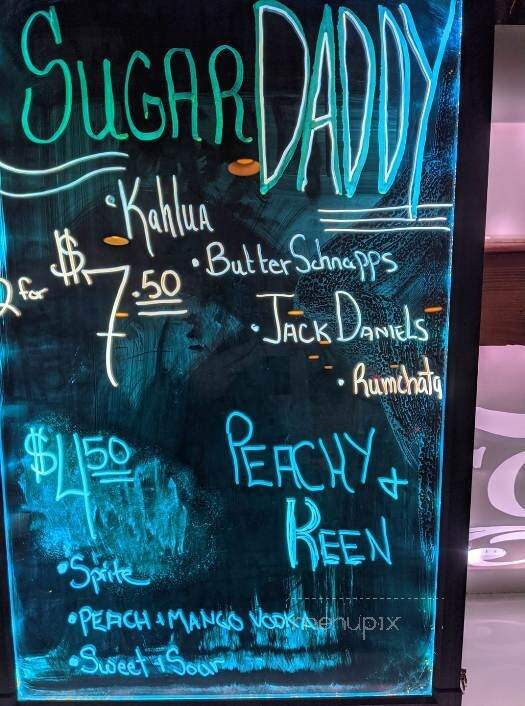 SUGAR DADDY
• Kahlua
2 for $7.50
• Butter Schnapps
• JACK DANIELS
• Rumchata
$4.50
PEACHY &
KEEN
• Sprite
• PEACH & MANGO VODKA
• Sweet & Sour
menupix